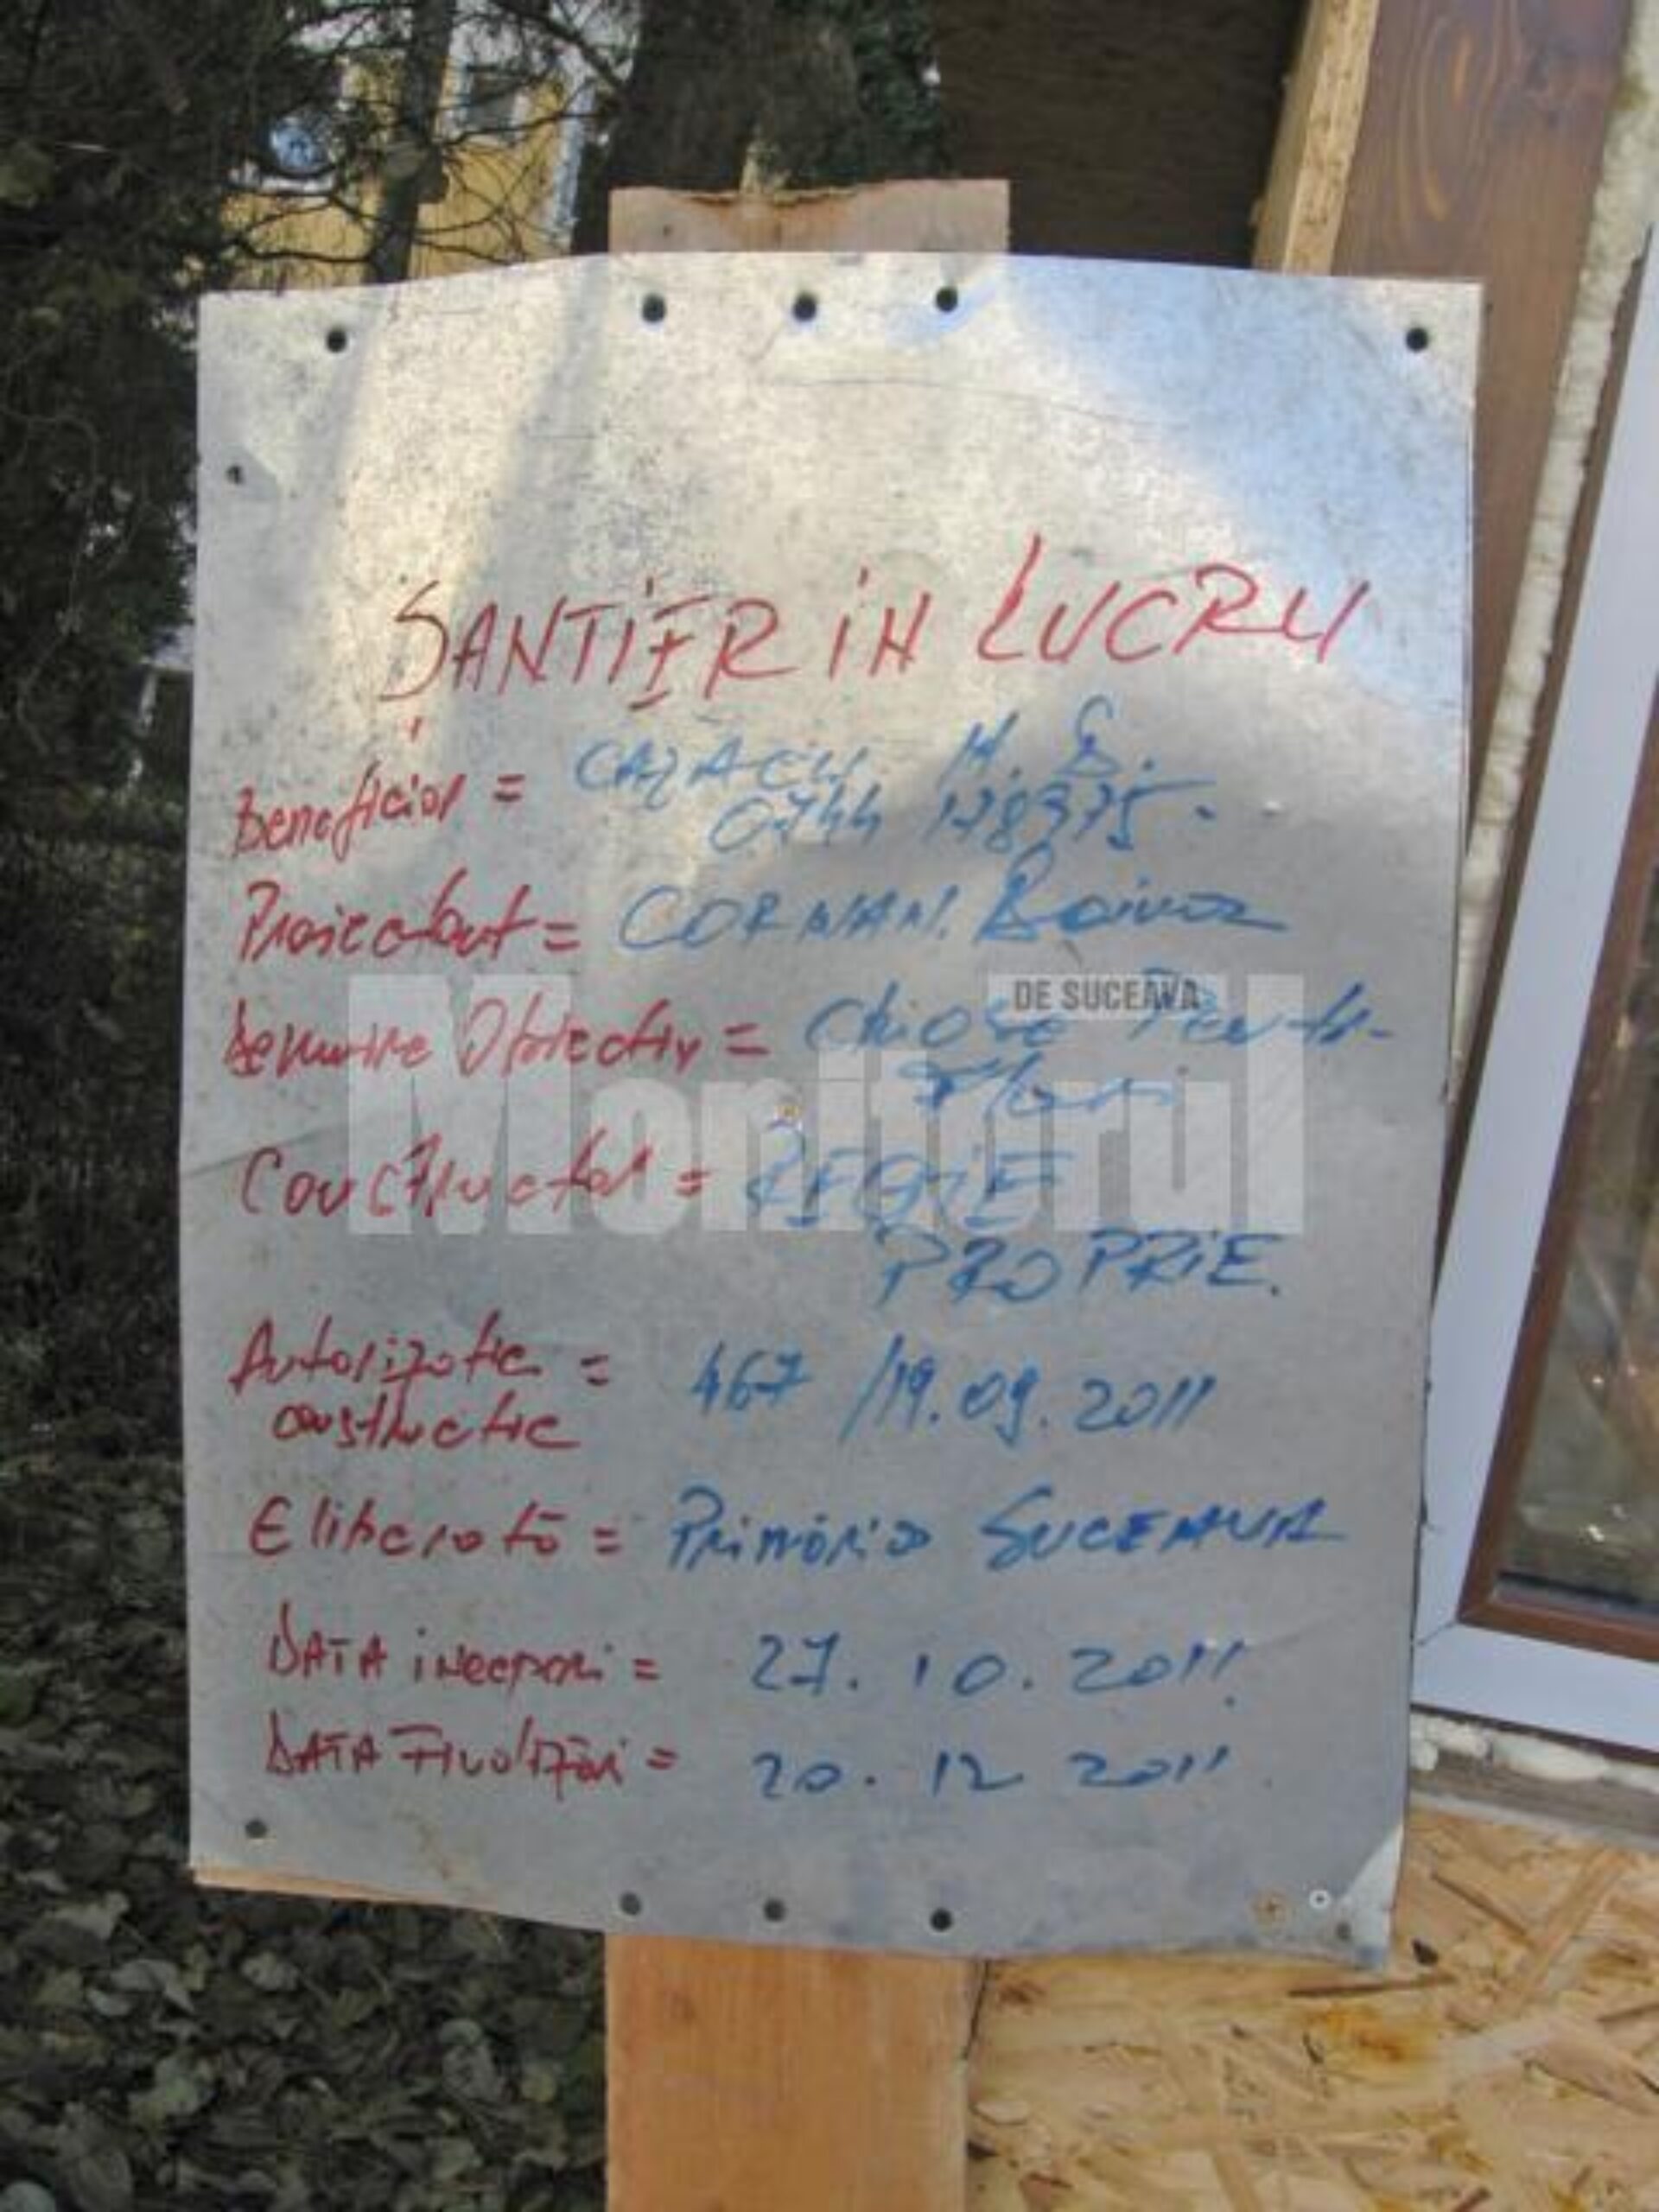 ȘANTIER IN LUCRU
Beneficiar = CAZACU. M. D.
0744 178375.
Proiectant = CORMAN.
Denumire Obiectiv = Chiosc Pentr-
Flori
Constructor = REGIE
PROPRIE.
Autorizatie = 467 /19.09.2011
constructie
Eliberată = Primăria SUCEAVA
DATA inceperii = 27.10.2011
DATA Finalizării = 20.12 2011
DE SUCEAVA
Monitorul